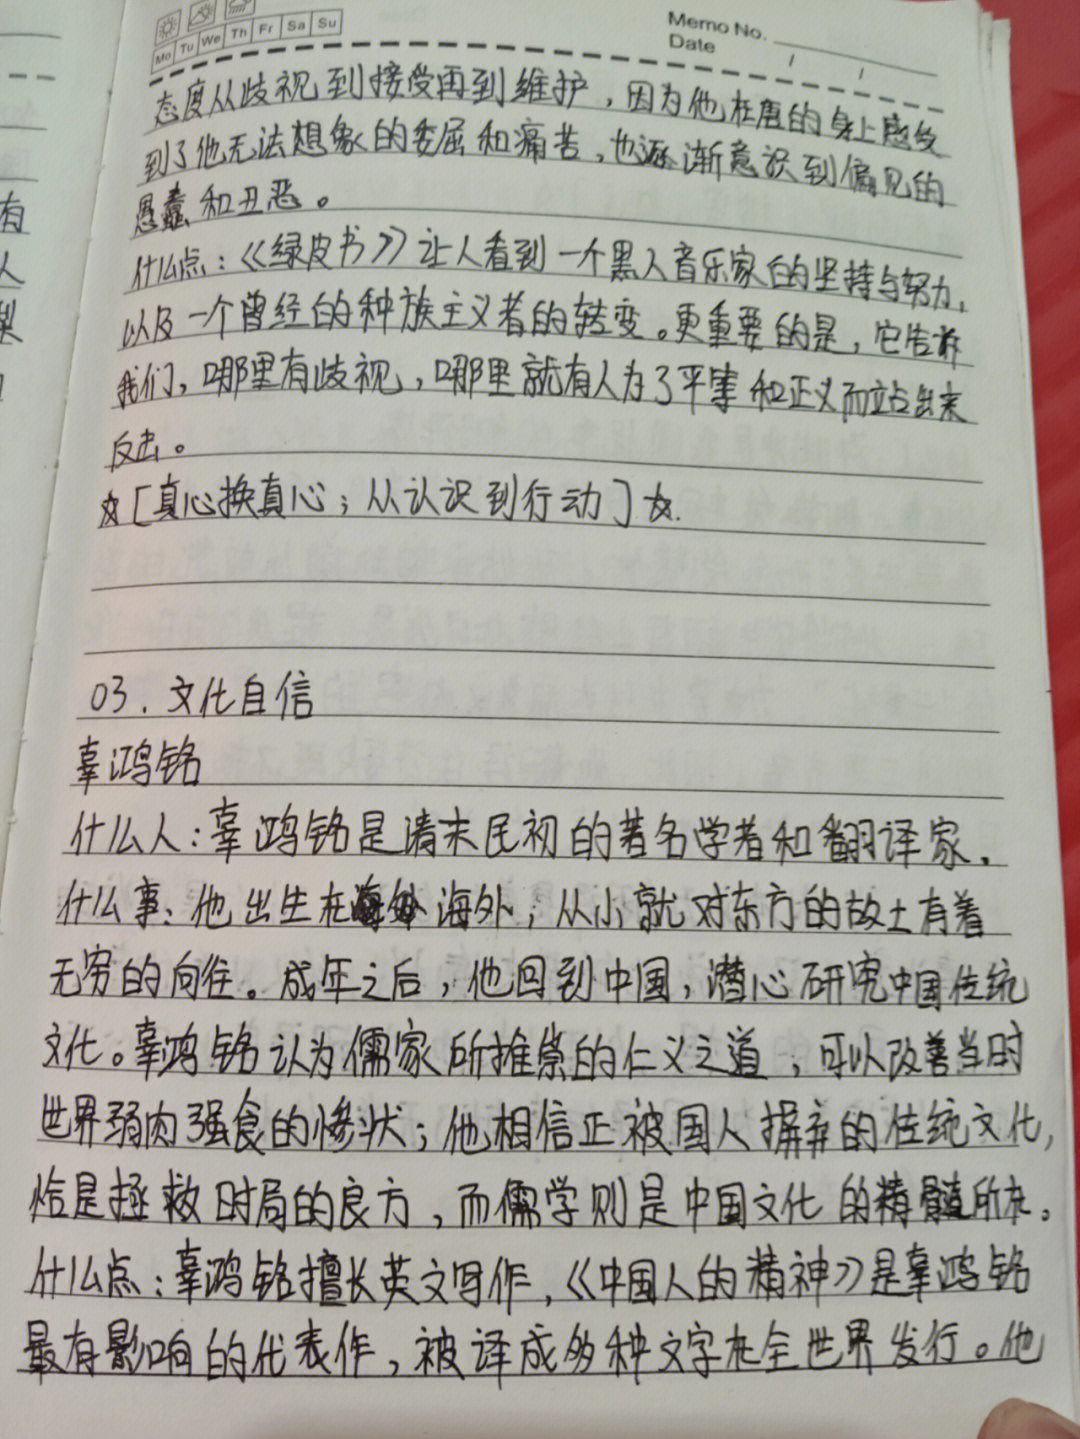 Mo Tu We Th Fr Sa Su
Memo No.
Date / /
态度从歧视到接受再到维护，因为他在唐的身上感受
到了他无法想象的委屈和痛苦，也逐渐意识到偏见的
愚蠢和丑恶。
什么点：《绿皮书》让人看到一个黑人音乐家的坚持与努力，
以及一个曾经的种族主义者的转变。更重要的是，它告诉
我们，哪里有歧视，哪里就有人为了平等和正义而站出来
反击。
☆[真心换真心；从认识到行动]☆.
03. 文化自信
辜鸿铭
什么人：辜鸿铭是清末民初的著名学者和翻译家.
什么事：他出生在海外；从小就对东方的故土有着
无穷的向往。成年之后，他回到中国，潜心研究中国传统
文化。辜鸿铭认为儒家所推崇的仁义之道，可以改善当时
世界弱肉强食的惨状；他相信正被国人摒弃的传统文化，
恰是拯救时局的良方，而儒学则是中国文化的精髓所在。
什么点：辜鸿铭擅长英文写作，《中国人的精神》是辜鸿铭
最有影响的代表作，被译成多种文字在全世界发行。他
有
人